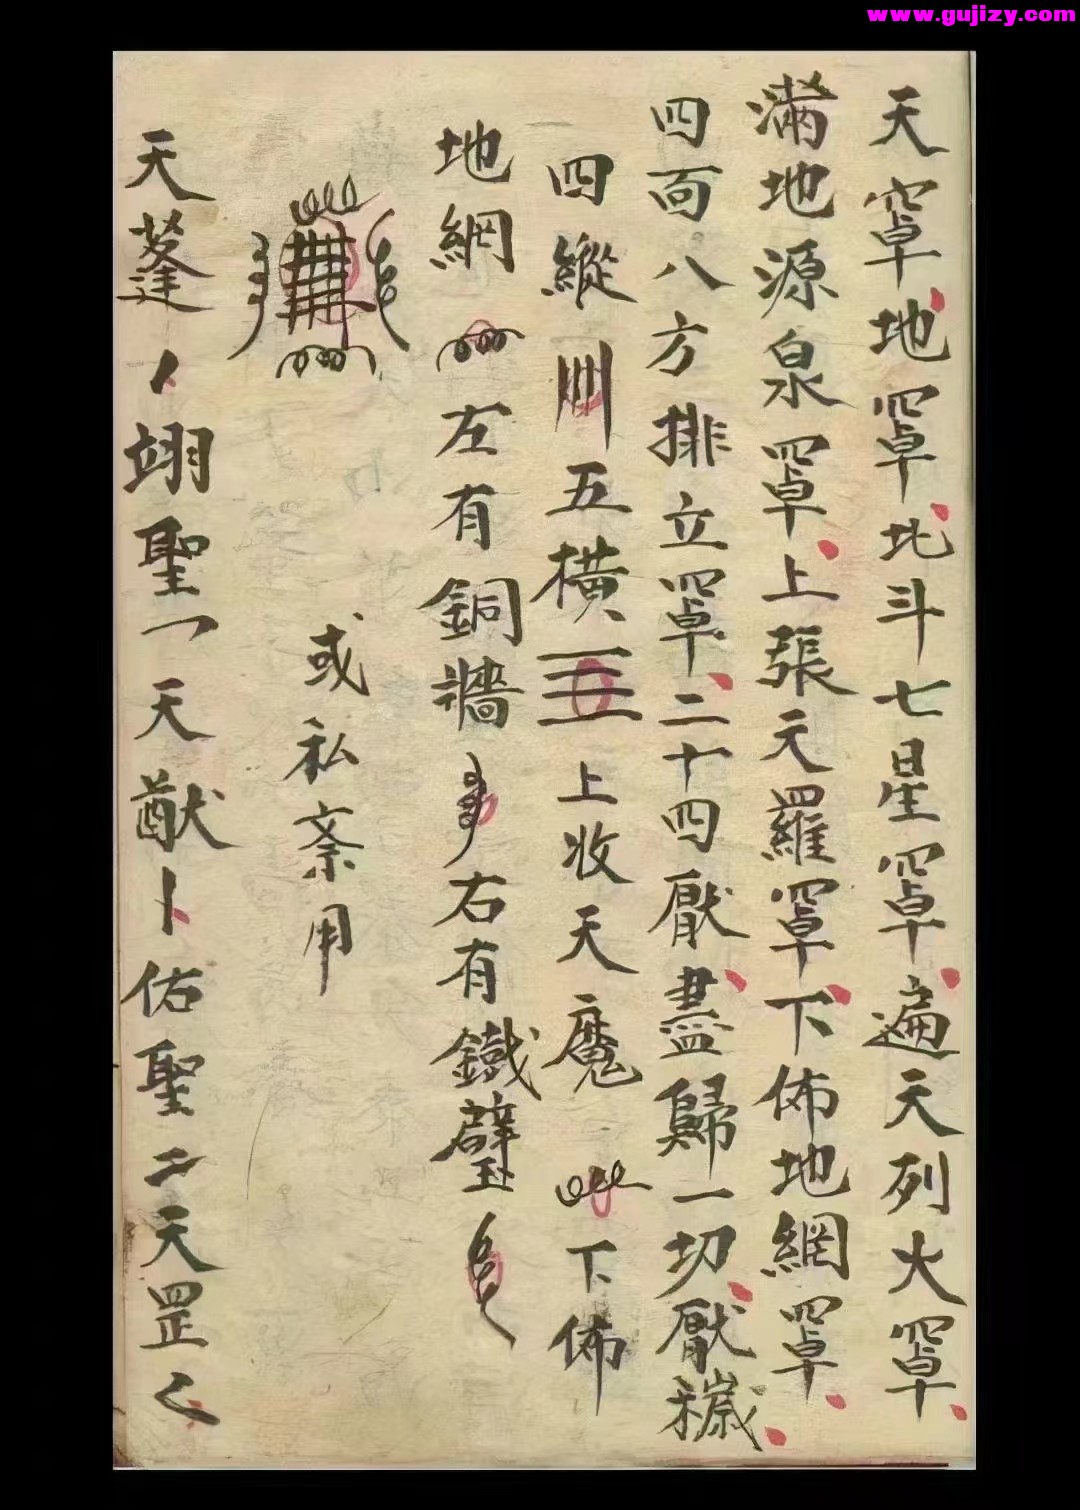 www.gujizy.com
天罩地罩北斗七星罩遍天列火罩
滿地源泉罩上張天羅罩下佈地網罩
四面八方排立罩二十四厭盡歸一切厭穢
四縱五橫上收天魔下佈
地網左有銅牆右有鐵壁
或私祭用
天蓬丿翊聖乛天猷卜佑聖二天罡く